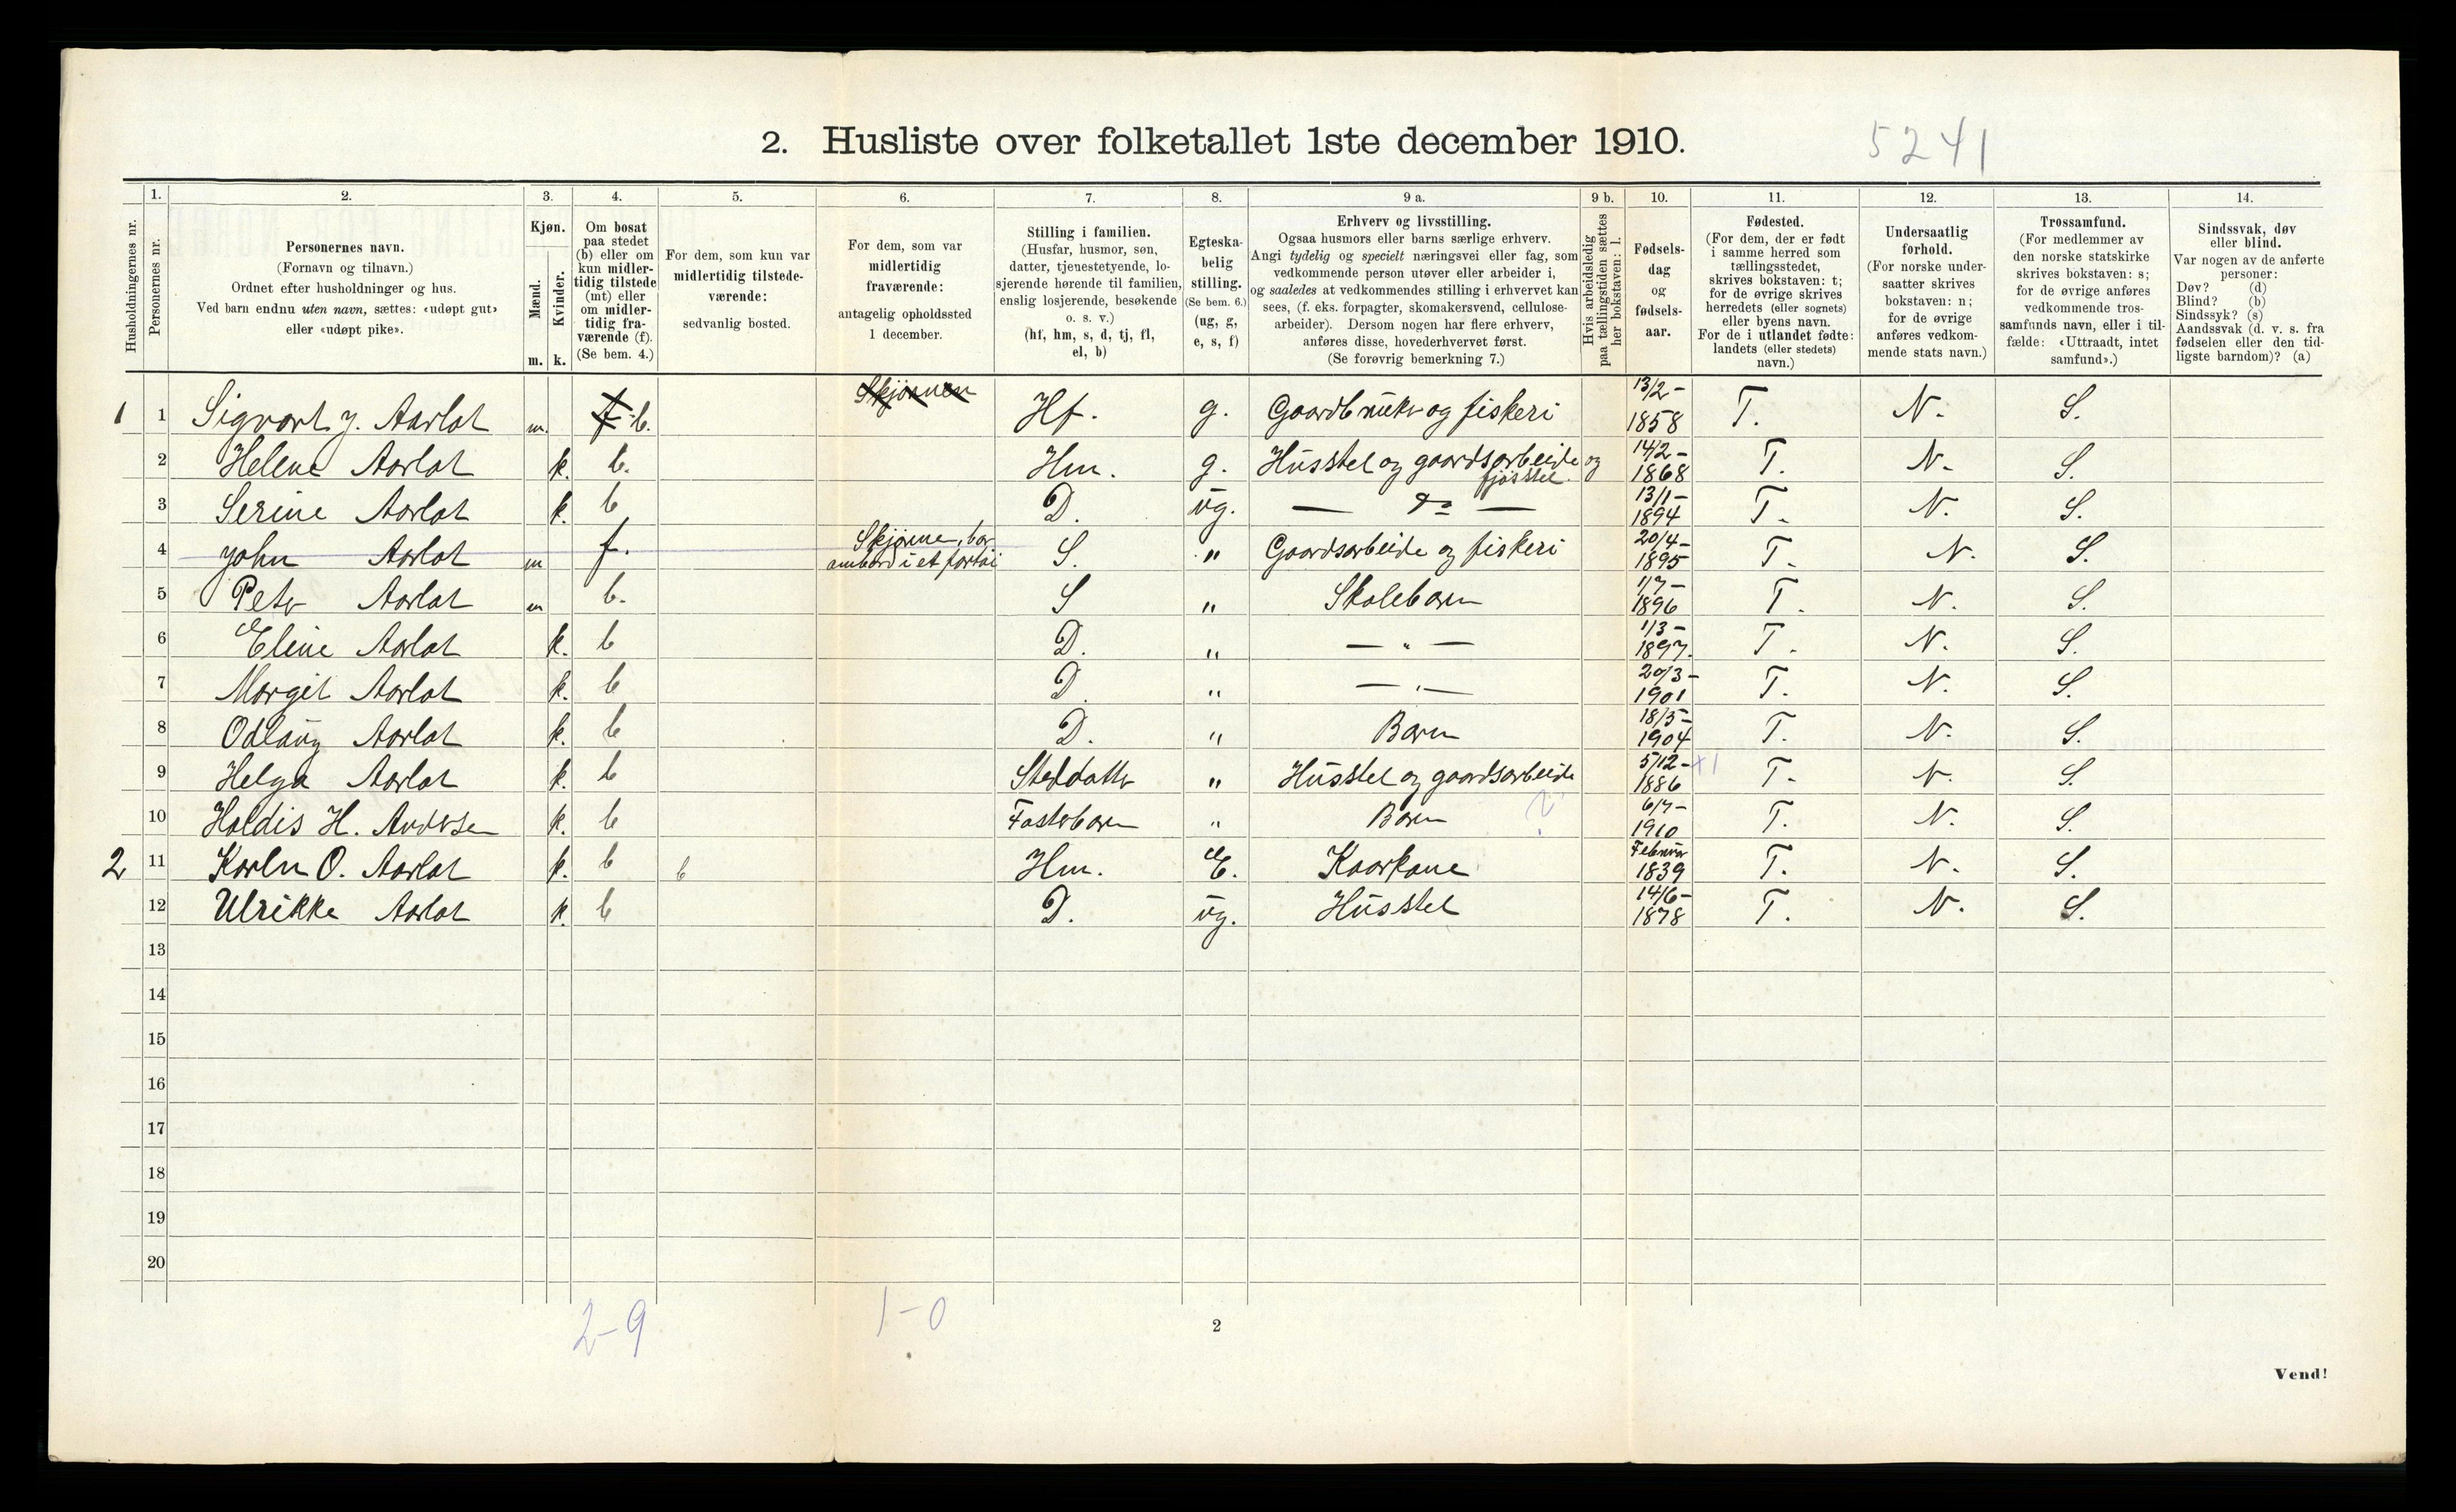 2. Husliste over folketallet 1ste december 1910.
5241
Husholdningernes nr.
1.
Personernes nr.
2.
Personernes navn.
(Fornavn og tilnavn.)
Ordnet efter husholdninger og hus.
Ved barn endnu uten navn, sættes: «udøpt gut»
eller «udøpt pike».
3.
Kjøn.
Mænd.
Kvinder.
m. k.
4.
Om bosat
paa stedet
(b) eller om
kun midler-
tidig tilstede
(mt) eller
om midler-
tidig fra-
værende (f).
(Se bem. 4.)
5.
For dem, som kun var
midlertidig tilstede-
værende:
sedvanlig bosted.
6.
For dem, som var
midlertidig
fraværende:
antagelig opholdssted
1 december.
7.
Stilling i familien.
(Husfar, husmor, søn,
datter, tjenestetyende, lo-
sjerende hørende til familien,
enslig losjerende, besøkende
o. s. v.)
(hf, hm, s, d, tj, fl,
el, b)
8.
Egteska-
belig
stilling.
(Se bem. 6.)
(ug, g,
e, s, f)
9 a.
Erhverv og livsstilling.
Ogsaa husmors eller barns særlige erhverv.
Angi tydelig og specielt næringsvei eller fag, som
vedkommende person utøver eller arbeider i,
og saaledes at vedkommendes stilling i erhvervet kan
sees, (f. eks. forpagter, skomakersvend, cellulose-
arbeider). Dersom nogen har flere erhverv,
anføres disse, hovederhvervet først.
(Se forøvrig bemerkning 7.)
9 b.
Hvis arbeidsledig
paa tællingstiden sættes
her bokstaven: l.
10.
Fødsels-
dag
og
fødsels-
aar.
11.
Fødested.
(For dem, der er født
i samme herred som
tællingsstedet,
skrives bokstaven: t;
for de øvrige skrives
herredets (eller sognets)
eller byens navn.
For de i utlandet fødte:
landets (eller stedets)
navn.)
12.
Undersaatlig
forhold.
(For norske under-
saatter skrives
bokstaven: n;
for de øvrige
anføres vedkom-
mende stats navn.)
13.
Trossamfund.
(For medlemmer av
den norske statskirke
skrives bokstaven: s;
for de øvrige anføres
vedkommende tros-
samfunds navn, eller i til-
fælde: «Uttraadt, intet
samfund».)
14.
Sindssvak, døv
eller blind.
Var nogen av de anførte
personer:
Døv? (d)
Blind? (b)
Sindssyk? (s)
Aandssvak (d. v. s. fra
fødselen eller den tid-
ligste barndom)? (a)
1 1 Sigvart J. Aarlot m. f b. Skjønnen Hf. g. Gaardbruker og fiskeri 13/2- 1858 T. N. S.
2 Helene Aarlot k. b. Hm. g. Husstel og gaardsarbeide og fjøsstel. 14/2- 1868 T. N. S.
3 Serine Aarlot k. b D. ug. — do — 13/1- 1894 T. N. S.
4 John Aarlot m f. Skjønne, bor ombord i et fartøi S. " Gaardsarbeide og fiskeri 20/4- 1895 T. N. S.
5 Peter Aarlot m b. S " Skolebarn 1/7- 1896 T. N. S.
6 Eline Aarlot k. b D. " — " — 1/3- 1897. T. N. S.
7 Margit Aarlot k. b D " — " — 20/3- 1901 T. N. S.
8 Odlaug Aarlot k. b D. " Barn 18/5- 1904 T. N. S.
9 Helga Aarlot k. b Steddatter " Husstel og gaardsarbeide 5/12- 1886 T. N. S.
10 Haldis H. Andersen k. b Fosterbarn " Barn ? 6/7- 1910 T. N. S.
2 11 Karen O. Aarlot k. b b Hm. E. Kaarkone Februar 1839 T. N. S.
12 Ulrikke Aarlot k. b D. ug. Husstel 14/6- 1878 T. N. S.
13
14
15
16
17
18
19
20
2-9 1-0
2
Vend!